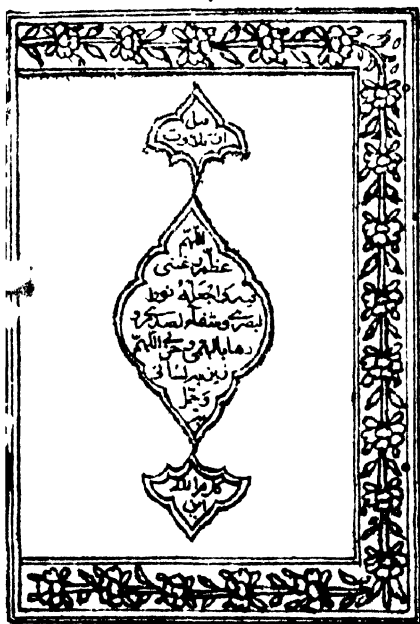 قبل
از تلاوت
اللهم
عظم رغبتي
فيه واجعله نورا
لبصري وشفاء لصدري و
ذهابا لهمي وحزني اللهم
زين به لساني
وجمل
به
كلام الله